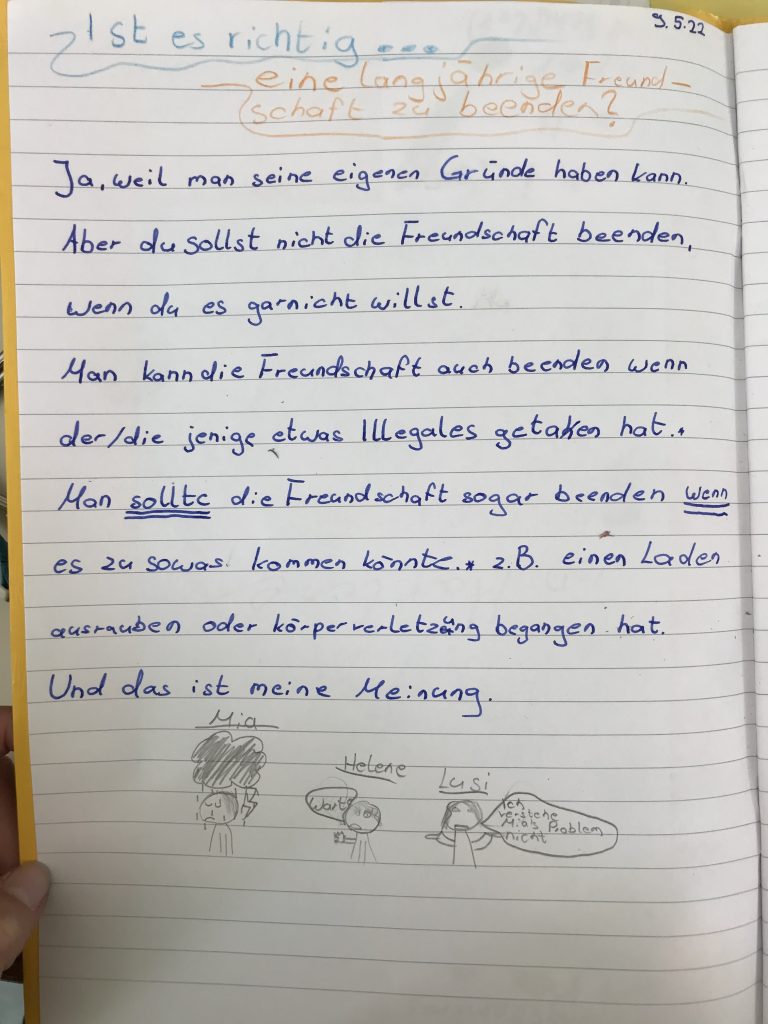 9.5.22
Ist es richtig ...
eine langjährige Freund-
schaft zu beenden?
Ja, weil man seine eigenen Gründe haben kann.
Aber du sollst nicht die Freundschaft beenden,
wenn du es garnicht willst.
Man kann die Freundschaft auch beenden wenn
der/die jenige etwas Illegales getahen hat.*
Man sollte die Freundschaft sogar beenden wenn
es zu sowas kommen könnte.* z.B. einen Laden
ausrauben oder körperverletzung begangen hat.
Und das ist meine Meinung.
Mia
Helene
Lusi
Warte
Ich
verstehe
Mia's Problem
nicht